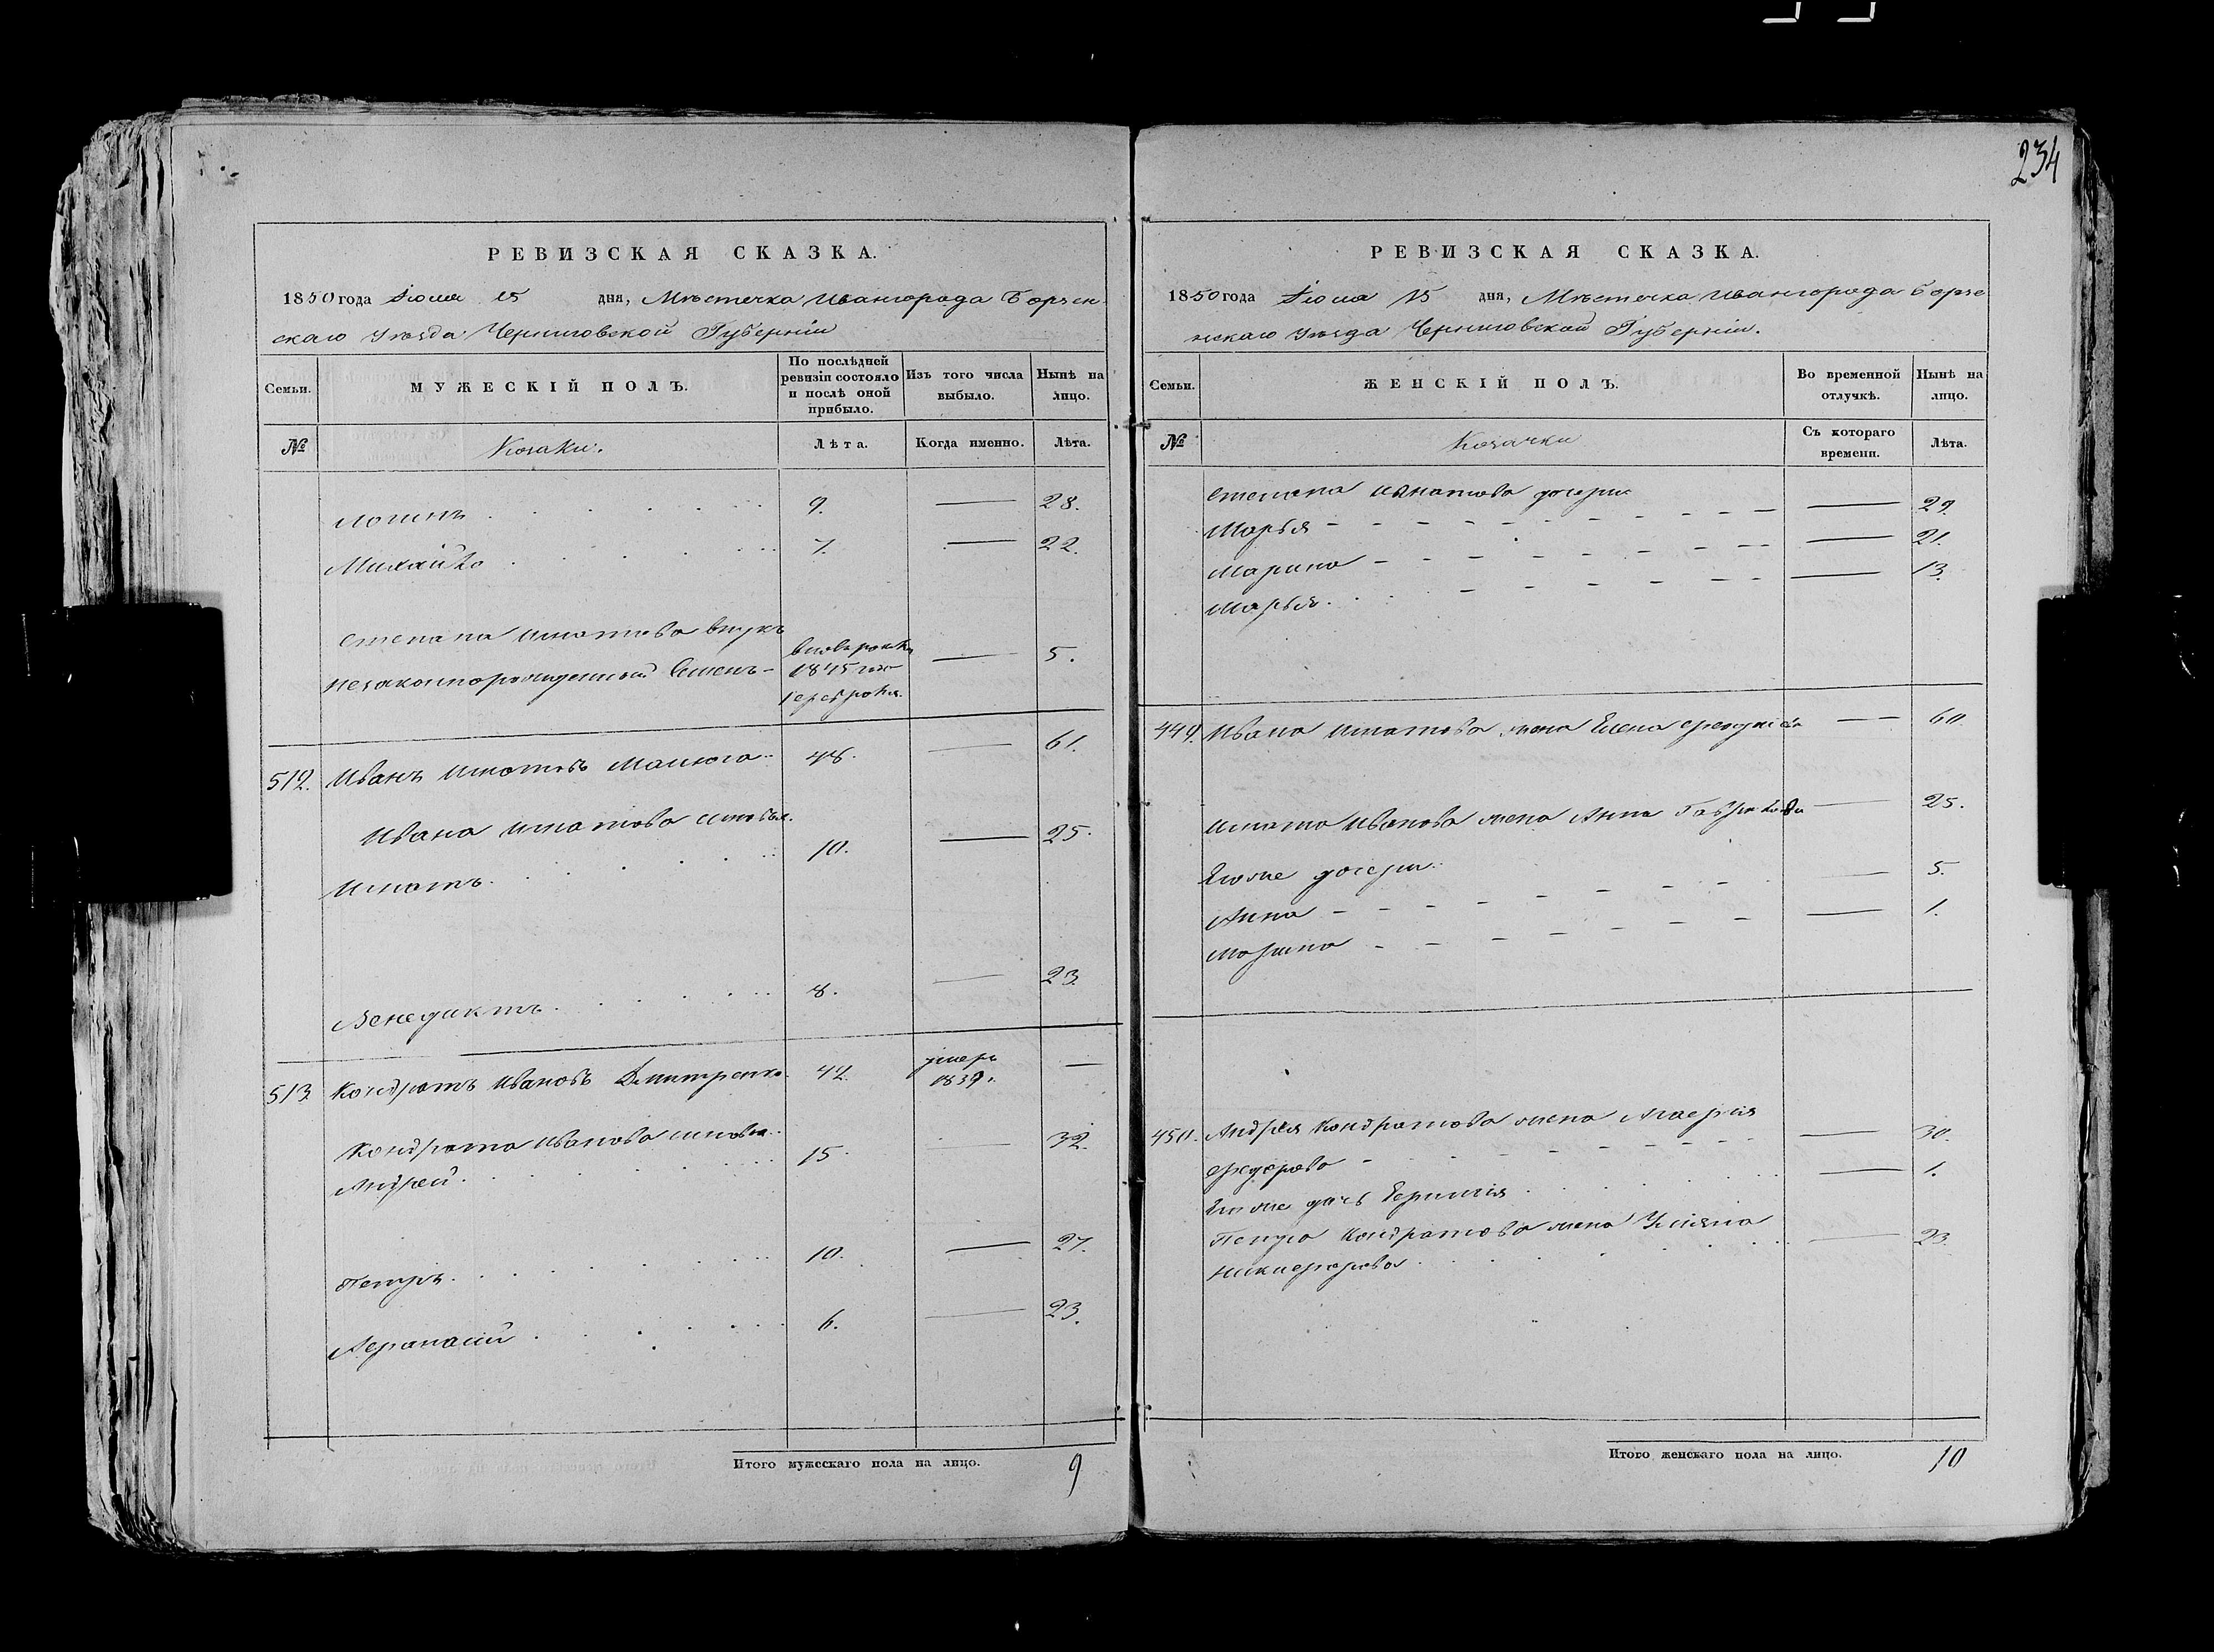 234
РЕВИЗСКАЯ СКАЗКА.
1850 года Іюля 15 дня, Мѣстечка Ивангорода Борзен
скаго Уѣзда Черниговской Губерніи
Семьи.
МУЖЕСКІЙ ПОЛЪ.
По послѣдней ревизіи состояло и послѣ оной прибыло.
Изъ того числа выбыло.
Нынѣ на лицо.
№
Козаки.
Лѣта.
Когда именно.
Лѣта.
Логинъ 9. — 28.
Михайло 7. — 22.
Степана Игнатова внукъ
незаконнорожденный Семенъ — 1845 года — 5.
512. Иванъ Игнатовъ Малюга 48. — 61.
Ивана Игнатова сыновья.
Игнатъ 10. — 25.
Венедиктъ 8. — 23.
513 Кондратъ Ивановъ Дмитренко 42. умеръ 1839 г. —
Кондрата Иванова сыновья
Андрей 15. — 32.
Петръ 10. — 27.
Афанасій 6. — 23.
Итого мужескаго пола на лицо. 9
РЕВИЗСКАЯ СКАЗКА.
1850 года Іюля 15 дня, Мѣстечка Ивангорода Борзе
нскаго Уѣзда Черниговской Губерніи.
Семьи.
ЖЕНСКІЙ ПОЛЪ.
Во временной отлучкѣ.
Нынѣ на лицо.
№
Козачки
Съ котораго времени.
Лѣта.
Степана Игнатова дочери
Марья — 29.
Марина — 21.
Марья — 13.
449. Ивана Игнатова жена Елена — 60
Игната Иванова жена Анна — 25.
Его же дочери
Анна — 5.
Марина — 1.
450. Андрея Кондратова жена
Федорова — 30.
Его же дочь — 1.
Петра Кондратова жена Ульяна
Никифорова — 23.
Итого женскаго пола на лицо. 10